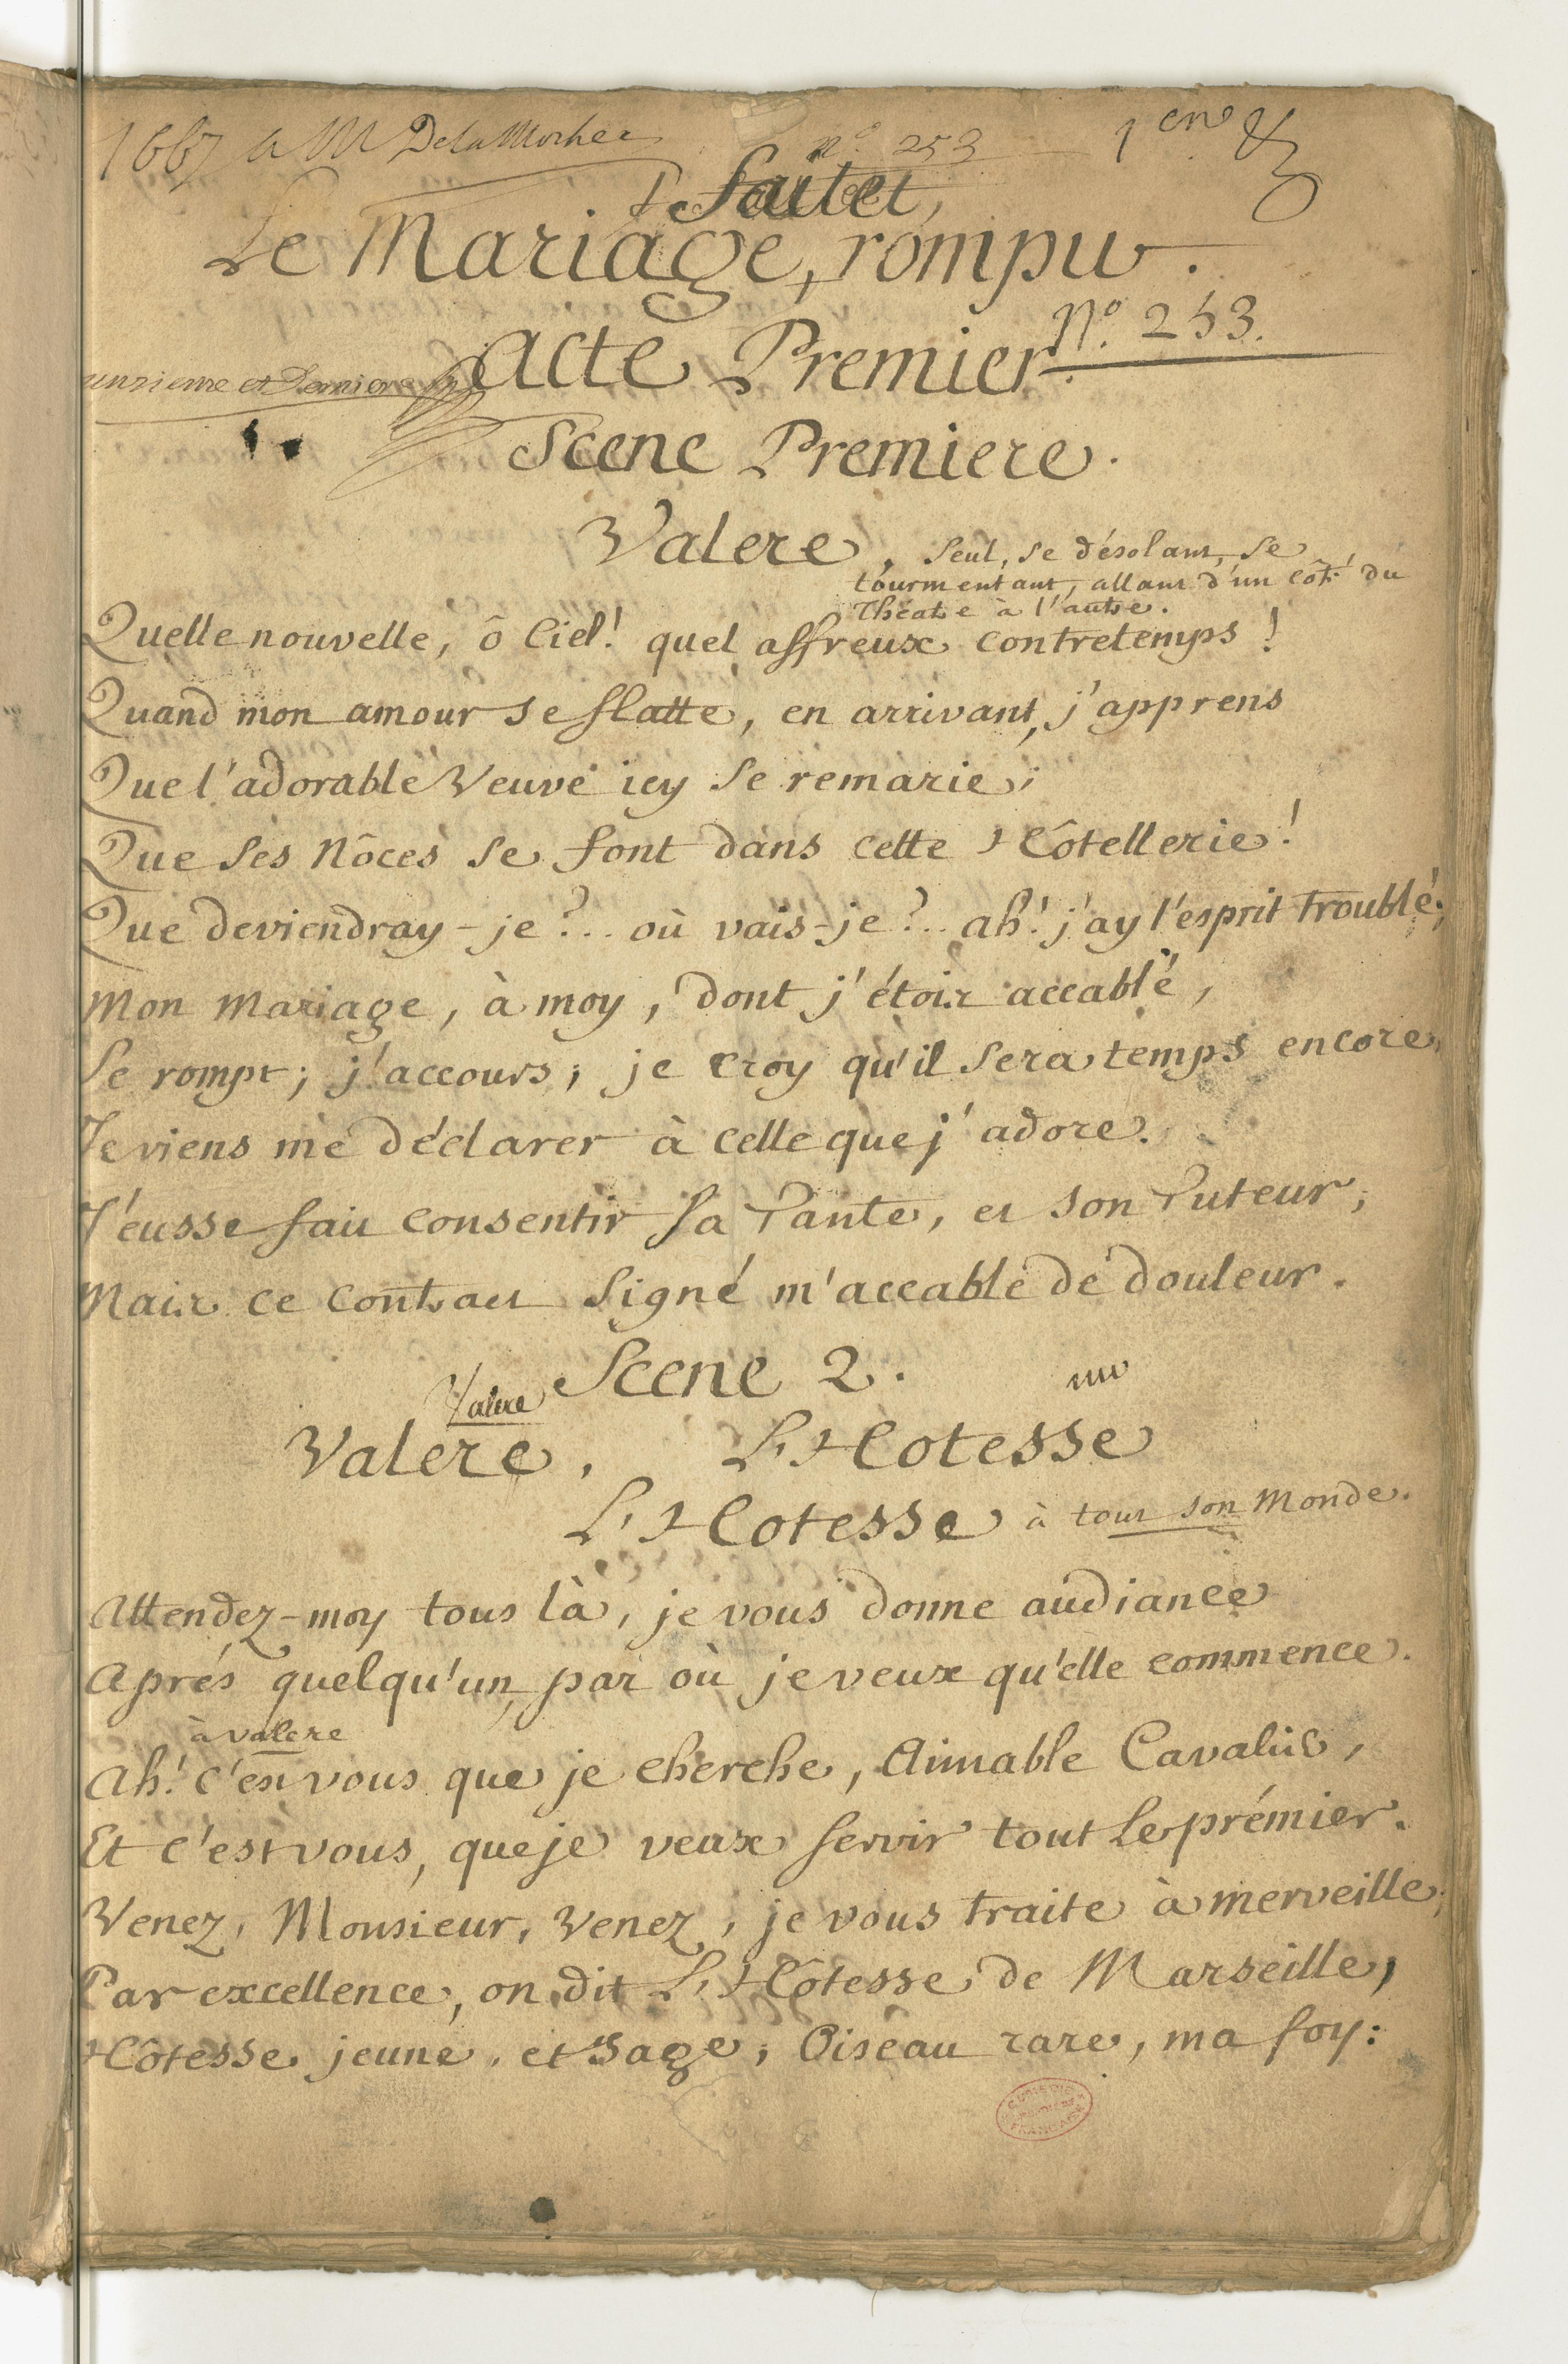 1667 a M Delamothee n.° 253
fait et,
Le Mariage, rompu.
N.° 253.
Acte Premier.
unzieme et Derniere
Scene Premiere.
Valere, seul, se désolant, se
tourmentant, allant d'un côté du
Théatre à l'autre.
Quelle nouvelle, ô Ciel! quel affreux contretemps!
Quand mon amour se flatte, en arrivant, j'apprens
Que l'adorable Veuve icy se remarie;
Que ses Nôces se font dans cette Hôtellerie!
Que deviendray-je?.. où vais-je?.. ah! j'ay l'esprit troublé;
Mon Mariage, à moy, dont j'étois accablé,
Se rompt; j'accours; je croy qu'il sera temps encore,
Je viens me déclarer à celle que j'adore.
J'eusse fait consentir sa Tante, et son Tuteur;
Mais ce contract signé m'accable de douleur.
Scene 2.
Valere
Valere, L'Hotesse
L'Hotesse à tout son Monde.
Attendez-moy tous là, je vous donne audiance
Aprés quelqu'un, par où je veux qu'elle commence.
à valere
Ah! c'est vous que je cherche, Aimable Cavalier,
Et c'est vous, que je veux servir tout le prémier.
Venez, Monsieur, Venez, je vous traite à merveille;
Par excellence, on dit L'Hôtesse de Marseille,
Hôtesse jeune, et sage, Oiseau rare, ma foy: